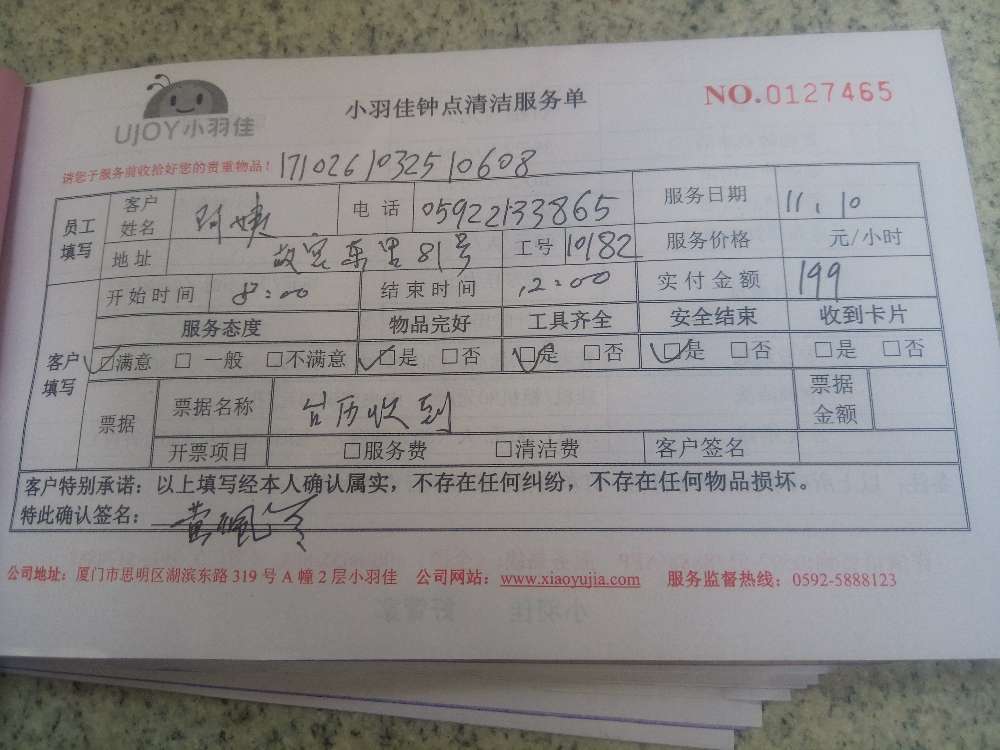 UJOY小羽佳
小羽佳钟点清洁服务单
NO.0127465
请您于服务前收拾好您的贵重物品！
1710261032510608
员工填写 客户姓名 阿姨 电话 05922133865 服务日期 11.10
地址 东里81号 工号 10182 服务价格 元/小时
开始时间 8:00 结束时间 12:00 实付金额 199
客户填写 服务态度 物品完好 工具齐全 安全结束 收到卡片
☑满意 □一般 □不满意 ☑是 □否 ☑是 □否 ☑是 □否 □是 □否
票据 票据名称 台历收到 票据金额
开票项目 □服务费 □清洁费 客户签名
客户特别承诺：以上填写经本人确认属实，不存在任何纠纷，不存在任何物品损坏。
特此确认签名：
公司地址：厦门市思明区湖滨东路319号A幢2层小羽佳 公司网站：www.xiaoyujia.com 服务监督热线：0592-5888123